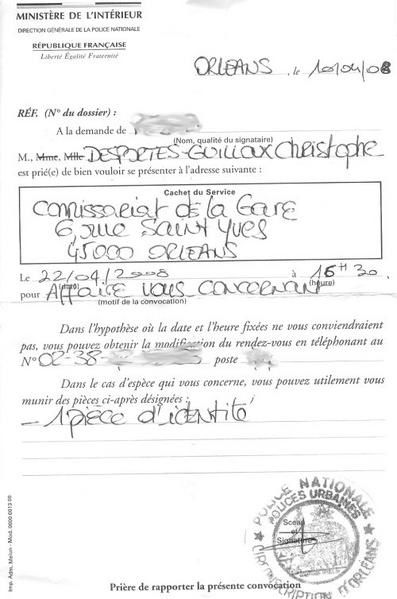 MINISTÈRE DE L'INTÉRIEUR
DIRECTION GÉNÉRALE DE LA POLICE NATIONALE
RÉPUBLIQUE FRANÇAISE
Liberté Égalité Fraternité
ORLEANS, le 10/04/08
RÉF. (N° du dossier) :
A la demande de
(Nom, qualité du signataire)
M., Mme, Mlle DESPORTES-GUILLOUX Christophe
est prié(e) de bien vouloir se présenter à l'adresse suivante :
Cachet du Service
Commissariat de la Gare
6, rue Saint Yves
45000 ORLEANS
Le 22/04/2008 à 16H30
(date) (heure)
pour Affaire vous concernant
(motif de la convocation)
Dans l'hypothèse où la date et l'heure fixées ne vous conviendraient
pas, vous pouvez obtenir la modification du rendez-vous en téléphonant au
N° 02-38- poste
Dans le cas d'espèce qui vous concerne, vous pouvez utilement vous
munir des pièces ci-après désignées :
- 1 pièce d'identité
POLICE NATIONALE
POLICES URBAINES
Sceau
et
Signature
CIRCONSCRIPTION D'ORLEANS
Prière de rapporter la présente convocation
Imp. Adm. Melun - Mod. 0000 0013 00